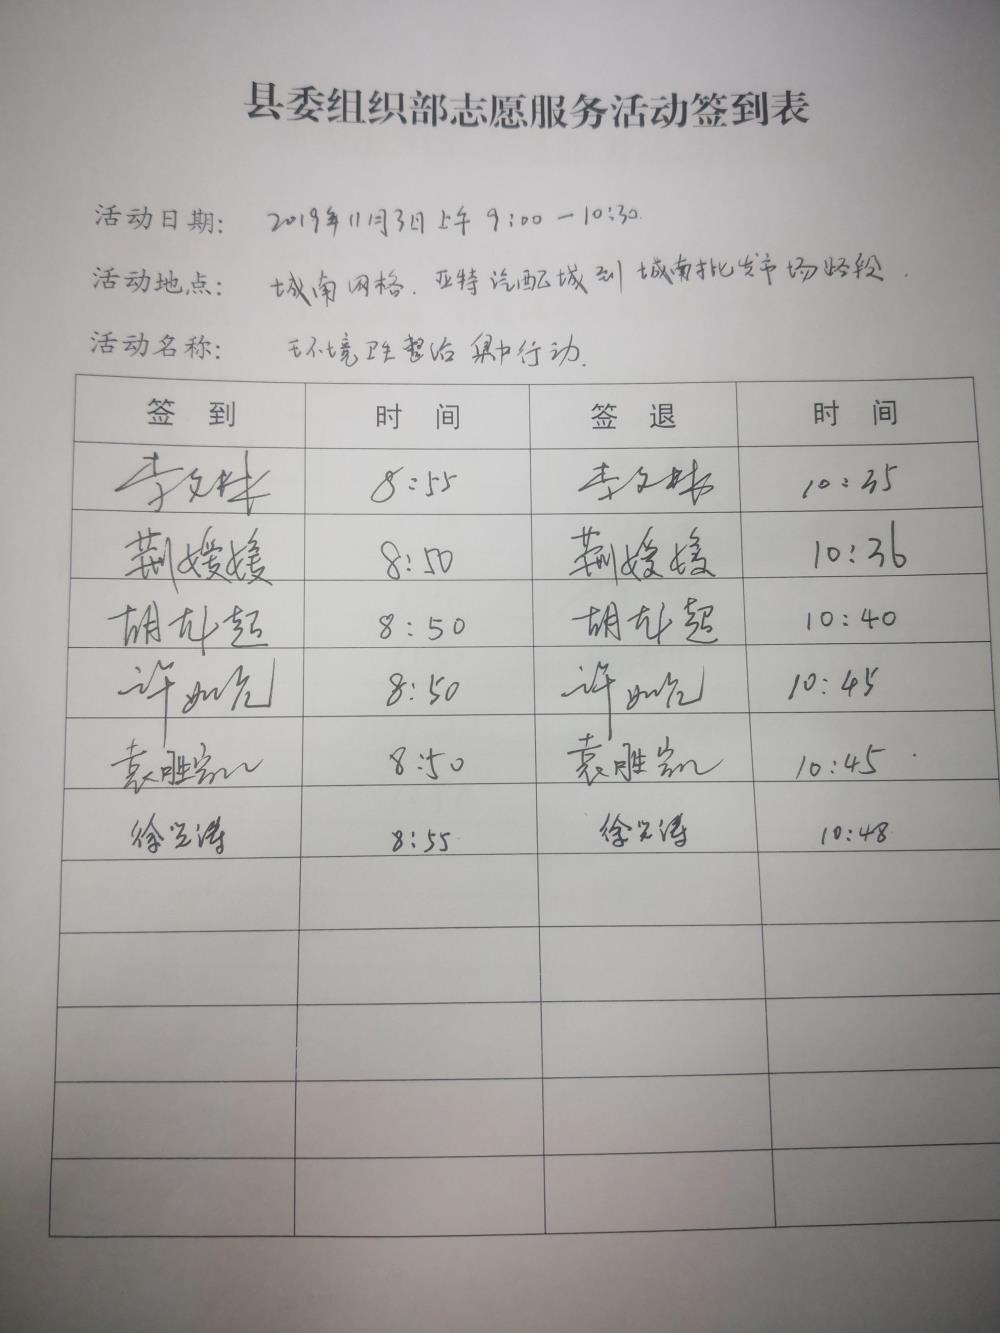 县委组织部志愿服务活动签到表
活动日期: 2019年11月3日上午 9:00-10:30.
活动地点: 城南网格. 亚特汽配城到城南批发市场路段.
活动名称: 环境卫生整治集中行动.
签到 时间 签退 时间
李文 8:55 李文 10:35
荆媛媛 8:50 荆媛媛 10:36
胡 超 8:50 胡 超 10:40
许 8:50 许 10:45
袁胜凯 8:50 袁胜凯 10:45
徐兴涛 8:55 徐兴涛 10:48